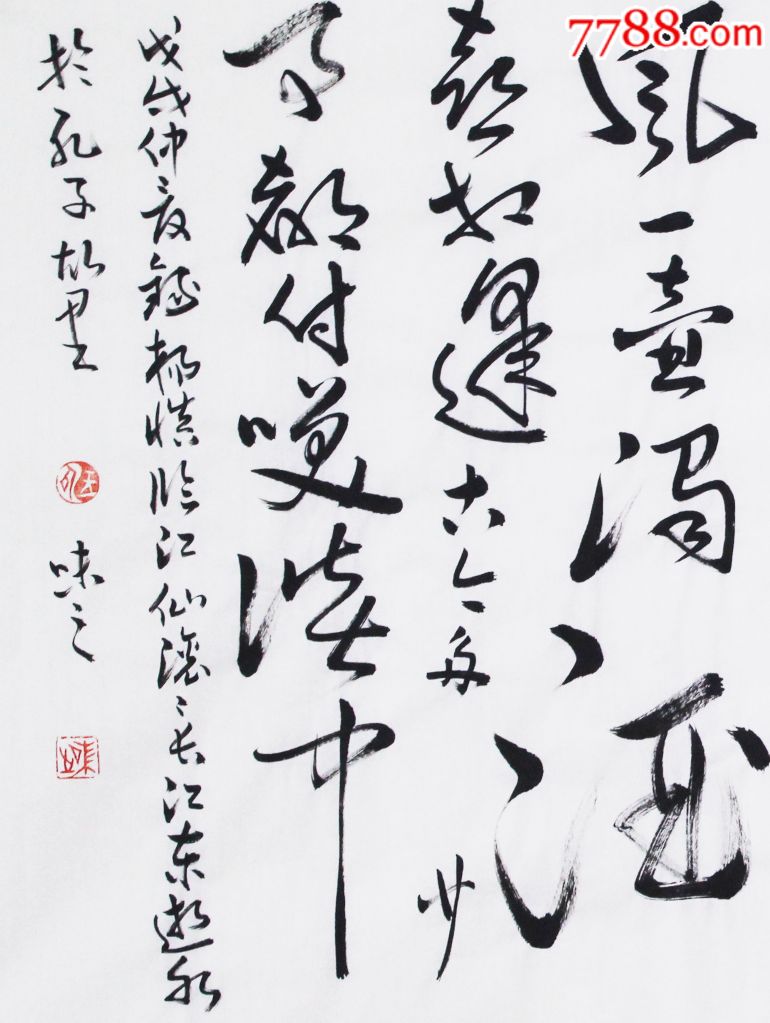 7788.com
風一壺濁酒
喜相逢古今多少
事都付笑談中
戊戌仲夏錄楊慎臨江仙滾〻長江東逝水
於孔子故里
味之